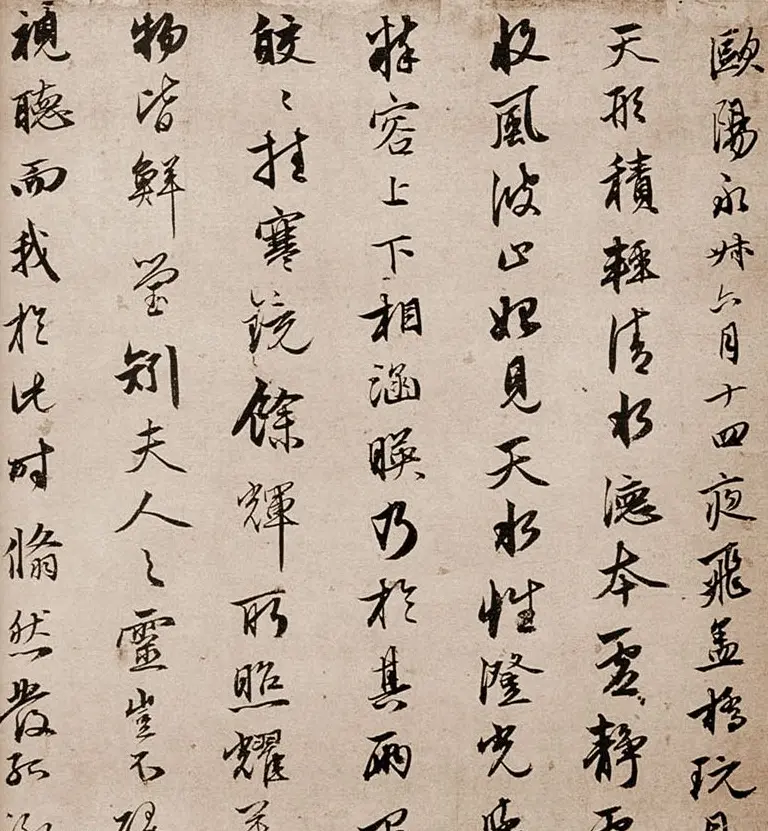 歐陽永叔六月十四夜飛盖橋玩月
天形積輕清水德本虛靜雲
收風波止始見天水性澄光
粹容上下相涵暎乃於其兩間
皎〻挂寒鏡餘輝所照耀萬
物皆鮮瑩矧夫人之靈豈不醒
視聽而我於此時翛然發孤